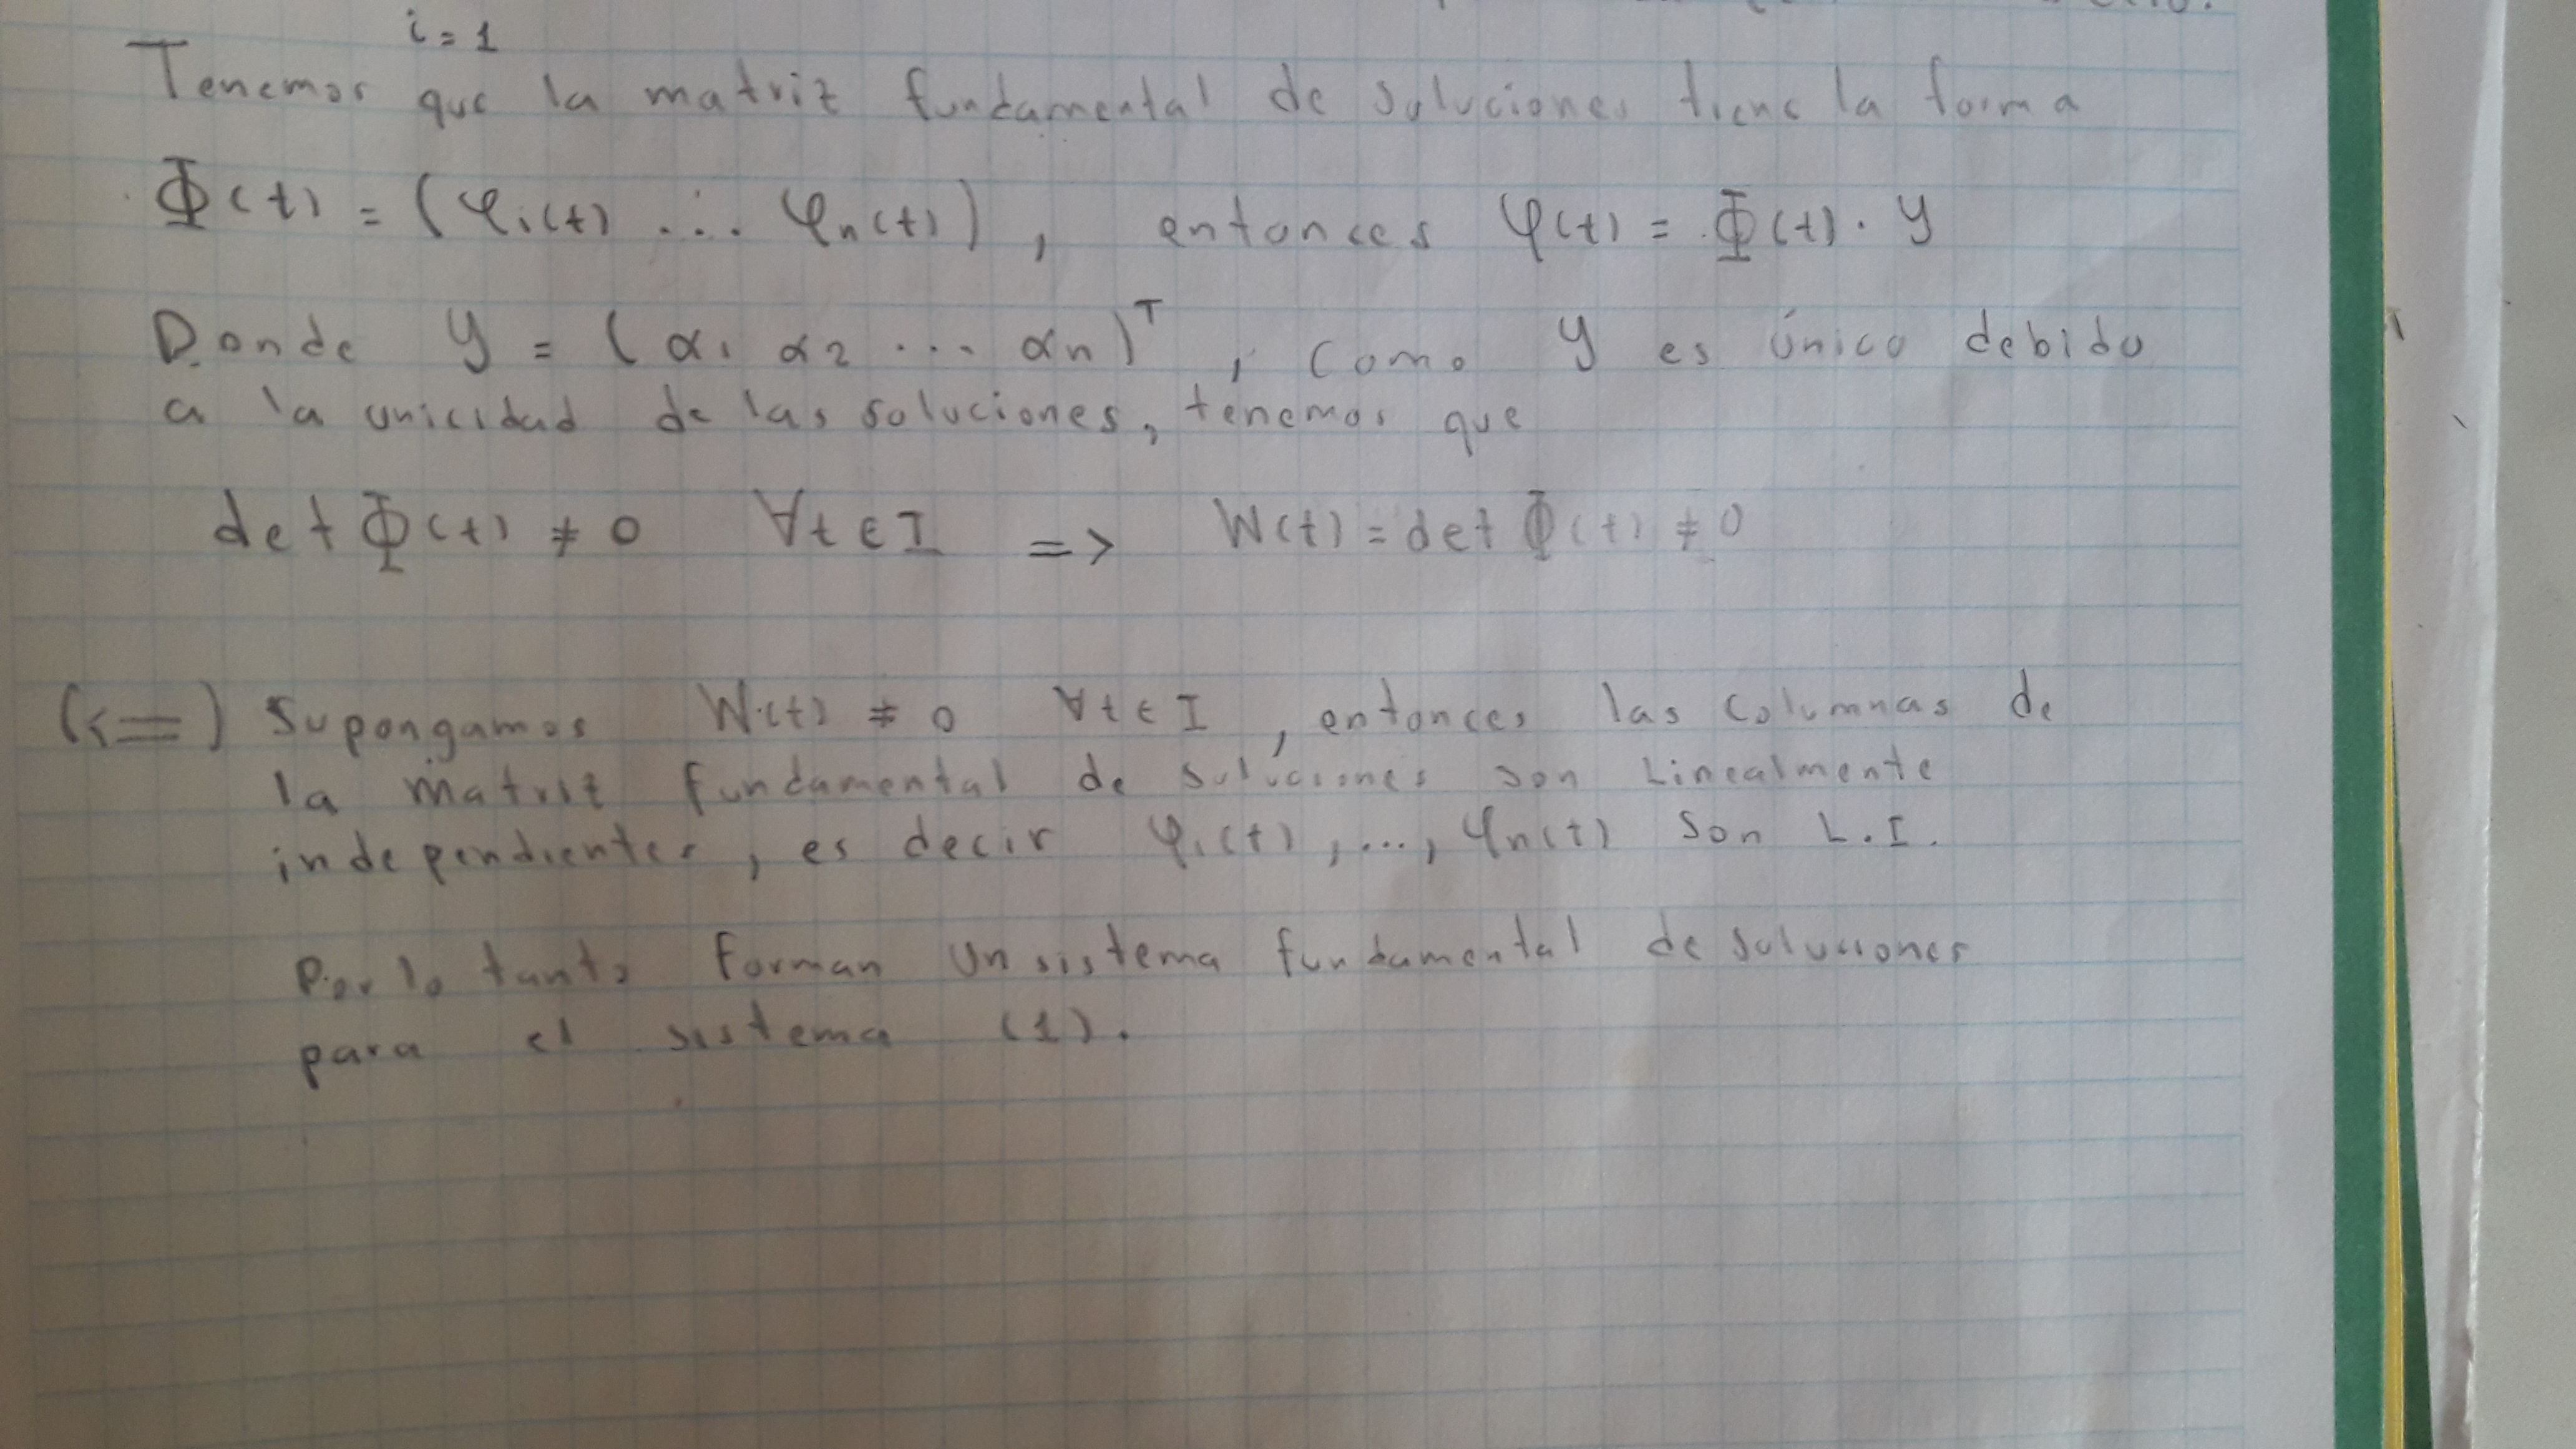 i = 1
Tenemos que la matriz fundamental de soluciones tiene la forma
Φ(t) = (φ₁(t) ... φₙ(t)) , entonces φ(t) = Φ(t) · y
Donde y = (α₁ α₂ ... αₙ)ᵀ , como y es único debido
a la unicidad de las soluciones, tenemos que
det Φ(t) ≠ 0 ∀t ∈ I => W(t) = det Φ(t) ≠ 0
(<=) Supongamos W(t) ≠ 0 ∀t ∈ I , entonces las columnas de
la matriz fundamental de soluciones son Linealmente
independientes , es decir φ₁(t) , ... , φₙ(t) son L.I.
Por lo tanto forman un sistema fundamental de soluciones
para el sistema (1).